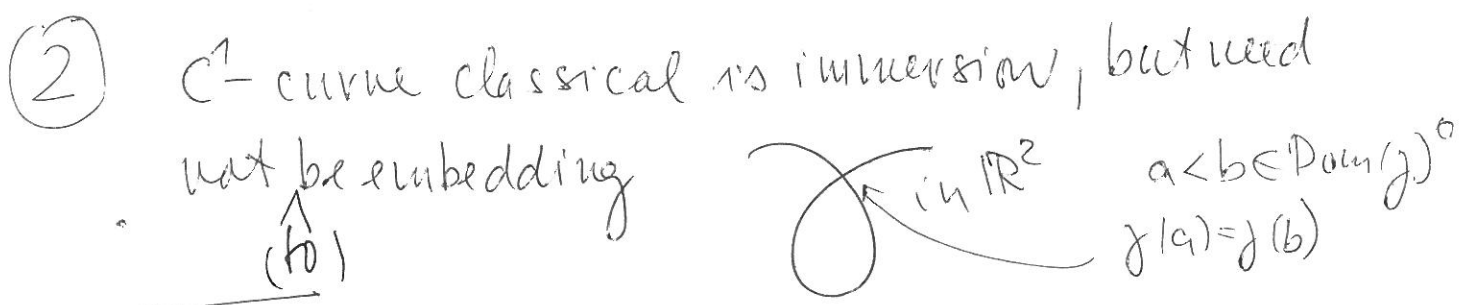 ② C¹-curve classical is immersion, but need
not be embedding in ℝ² a<b∈Dom(γ)°
(to) γ(a)=γ(b)